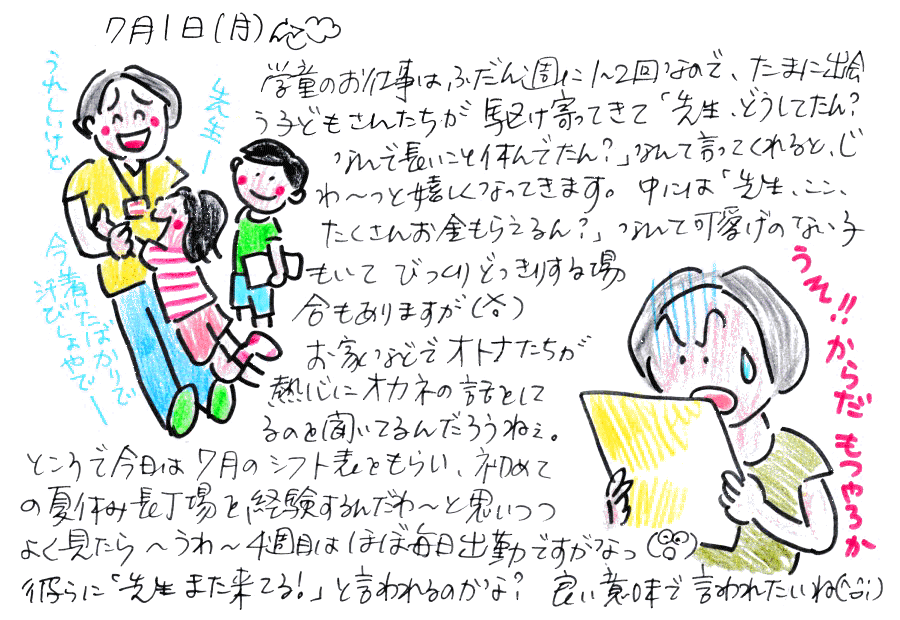 7月1日(月)
学童のお仕事は、ふだん週に1~2回なので、たまに出会
う子どもさんたちが駆け寄ってきて「先生、どうしてたん?
なんで長いこと休んでたん?」なんて言ってくれると、じ
わ~っと嬉しくなってきます。中には「先生、ここ、
たくさんお金もらえるん?」なんて可愛げのない子
もいてびっくりどっきりする場
合もありますが
お家などでオトナたちが
熱心にオカネの話をして
るのを聞いてるんだろうねぇ。
ところで今日は7月のシフト表をもらい、初めて
の夏休み長丁場を経験するんだわ~と思いつつ
よく見たら~うわ~4週目はほぼ毎日出勤ですがなっ
彼らに「先生また来てる!」と言われるのかな? 良い意味で言われたいね(^^;)
先生ー
うれしいけど
今着いたばかりで
汗びしょやでー
うわ!!からだもつやろか